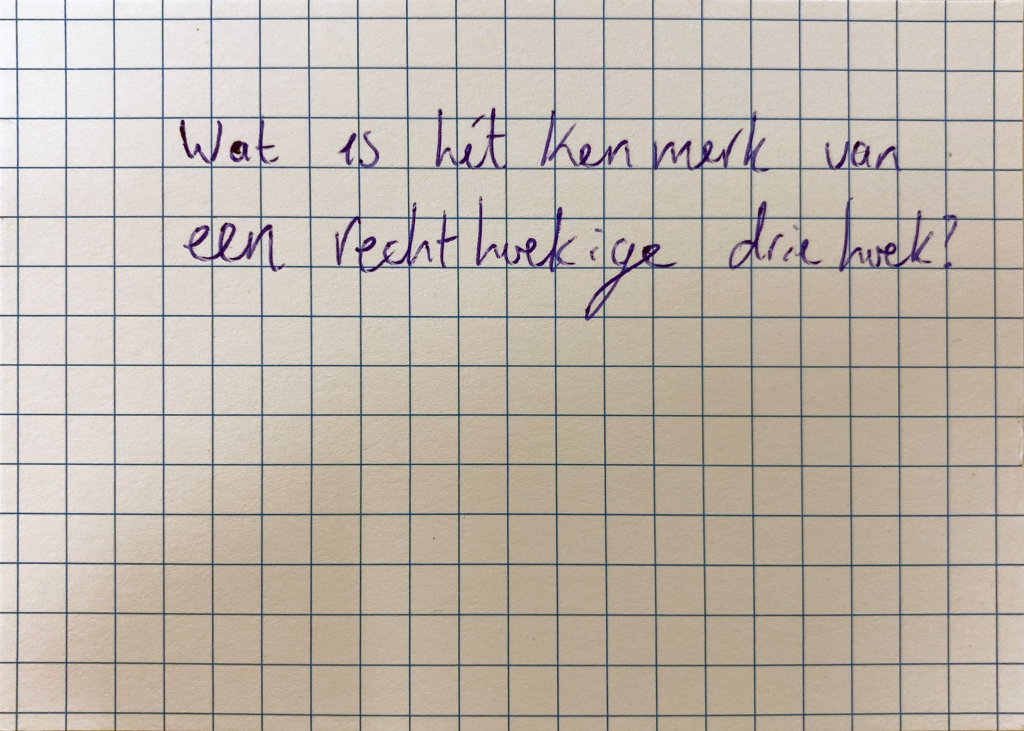 Wat is hét kenmerk van
een rechthoekige driehoek?